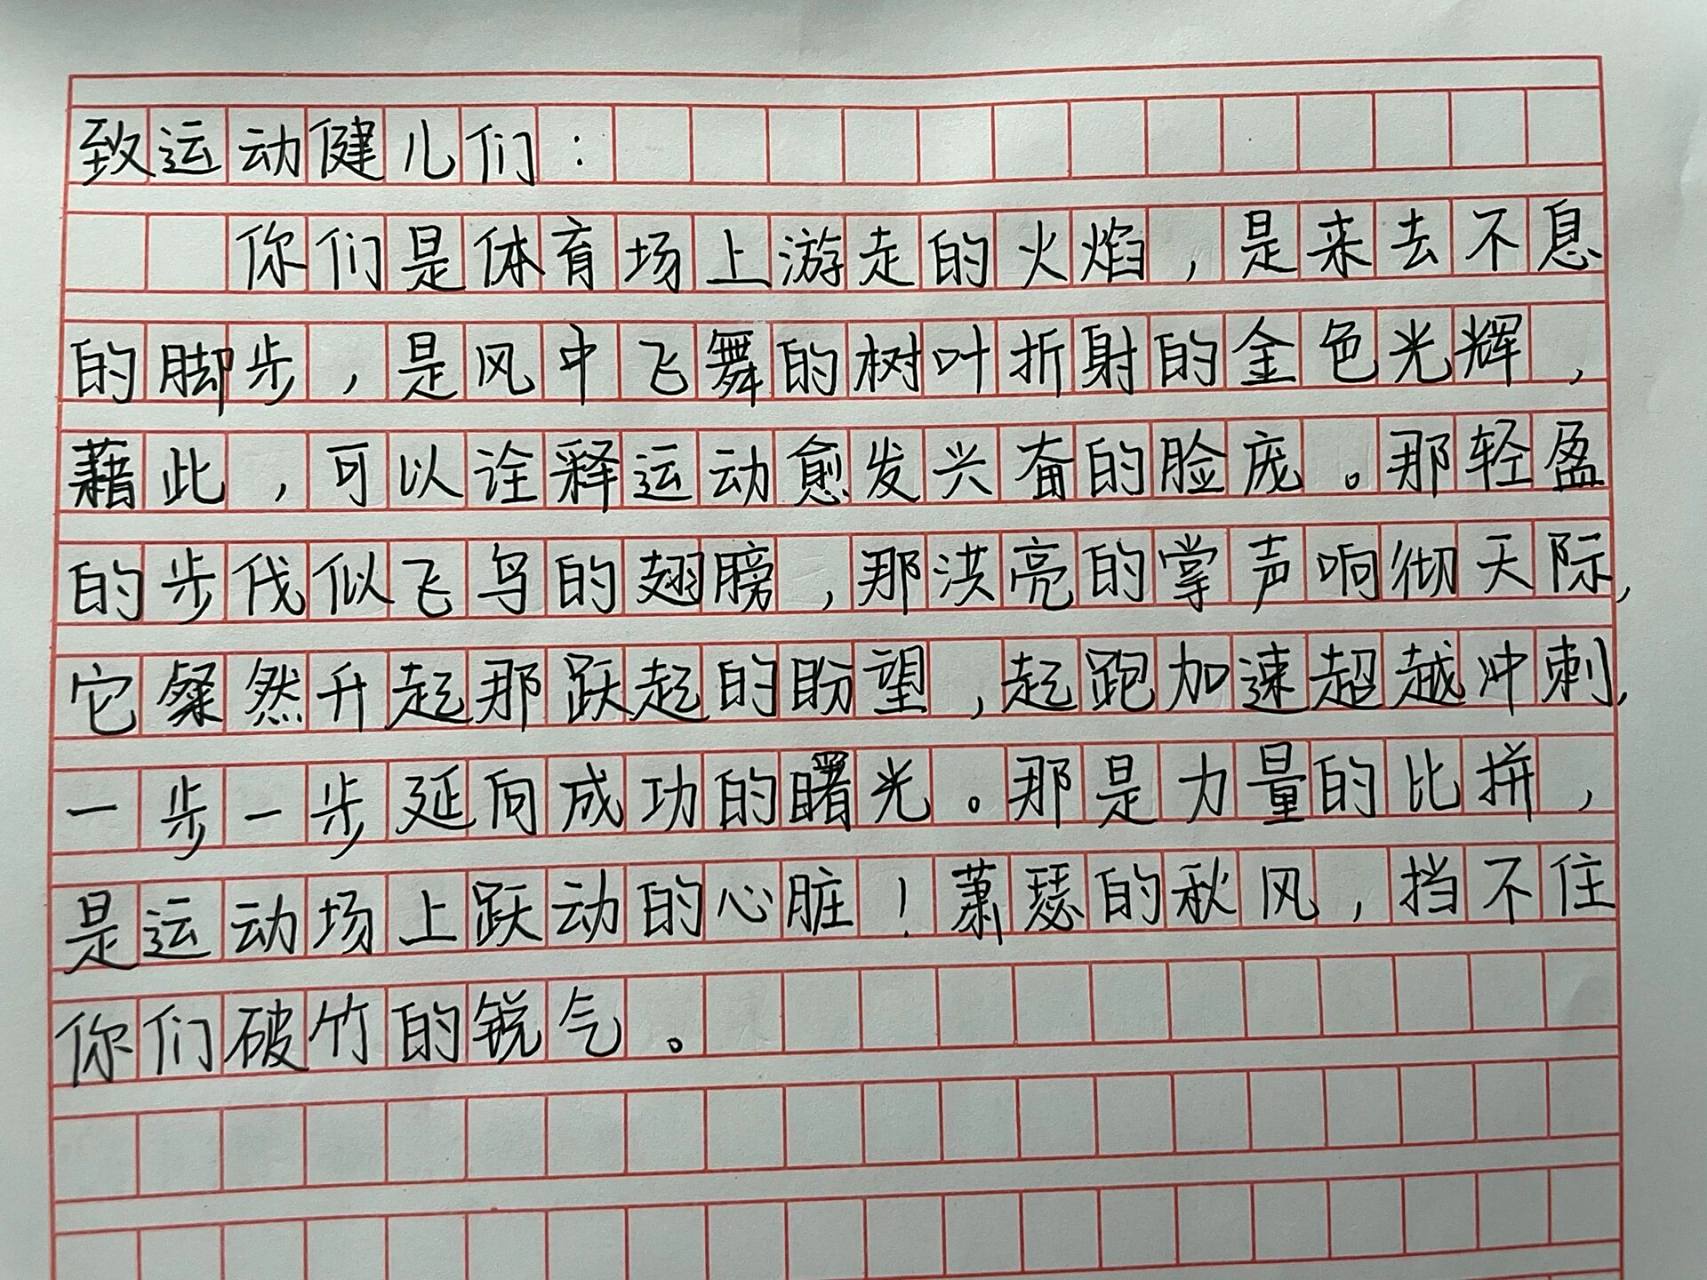 致运动健儿们：
你们是体育场上游走的火焰，是来去不息
的脚步，是风中飞舞的树叶折射的金色光辉，
藉此，可以诠释运动愈发兴奋的脸庞。那轻盈
的步伐似飞鸟的翅膀，那洪亮的掌声响彻天际，
它粲然升起那跃起的盼望，起跑加速超越冲刺，
一步一步延向成功的曙光。那是力量的比拼，
是运动场上跃动的心脏！萧瑟的秋风，挡不住
你们破竹的锐气。